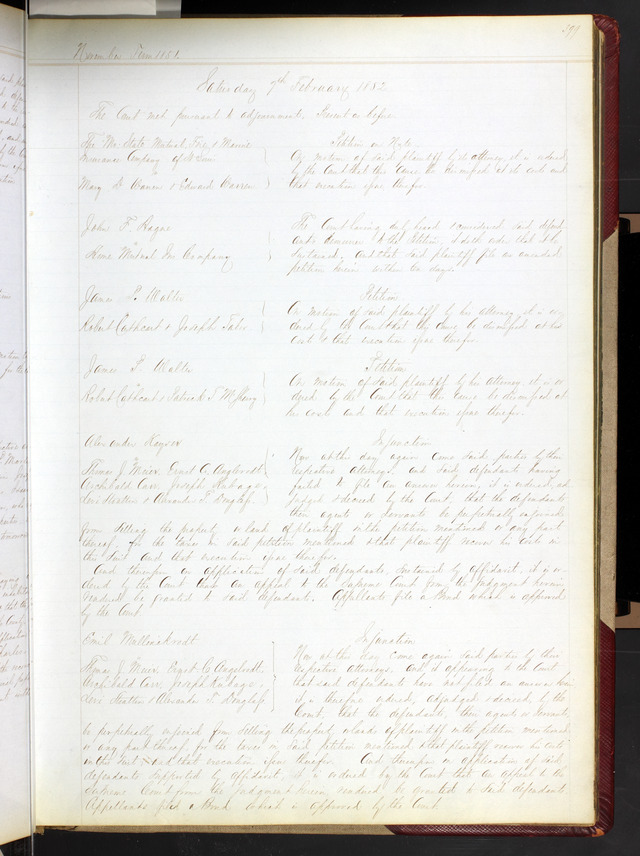 November Term 1851.
Saturday 7th February 1852
The Court met pursuant to adjournment. Present as before
The Mo. State Mutual Fire & Marine Petition on Note
Insurance Company of St Louis On motion of said plaintiff by its attorney, it is ordered
by the Court that this cause be dismissed at its cost and
Mary W. & Edward Warren that execution issue therefor.
John F. The Court having duly heard & considered said defend
ants demurrer to the Petition, doth order that it be
Home Mutual Ins. Company sustained. And that said plaintiff file an amended
petition herein within ten days.
James P. Walter Petition
On motion of said plaintiff by his attorney it is or
Robert Cathcart & Joseph dered by the Court that this cause be dismissed at his
cost & that execution issue therefor.
James P. Walter Petition
On motion of said plaintiff by his attorney, it is or
Robert Cathcart & Patrick T. dered by the Court that this cause be dismissed at
his costs and that execution issue therefor.
Alexander Kayser Injunction
Now at this day again come said parties by their
Thomas J. Meier, Ernst C. Angelrodt respective attorneys and said defendants having
Archibald Carr, Joseph failed to file an answer herein, it is ordered, ad
Levi Stratton & Alexander T. Douglass judged & decreed by the Court, that the defendants
their agents or servants be perpetually enjoined
from selling the property or lands of plaintiff in the petition mentioned or any part
thereof, for the taxes in said petition mentioned & that plaintiff recover his costs in
the suit and that execution issue therefor.
And thereupon on application of said defendants, sustained by affidavit, it is or
dered by the Court that an appeal to the Supreme Court from the judgment herein
rendered be granted to said defendant. Appellants file a Bond which is approved
by the Court
Emil Mallinckrodt Injunction
Now at this day come again said parties by their
Thomas J. Meier, Ernst C. Angelrodt respective attorneys. And it appearing to the Court
Archibald Carr, Joseph that said defendants have not filed an answer herein
Levi Stratton & Alexander T. Douglass it is therefore ordered, adjudged & decreed, by the
Court, that the defendants, their agents or servants,
be perpetually enjoined from selling the property or lands of plaintiff in the petition mentioned
or any part thereof, for the taxes in said petition mentioned & that plaintiff recover his costs
in this suit and that execution issue therefor. And thereupon on application of said
defendants supported by affidavit, it is ordered by the Court that an appeal to the
Supreme Court from the judgment herein rendered be granted to said defendants
Appellants file a Bond which is approved by the Court